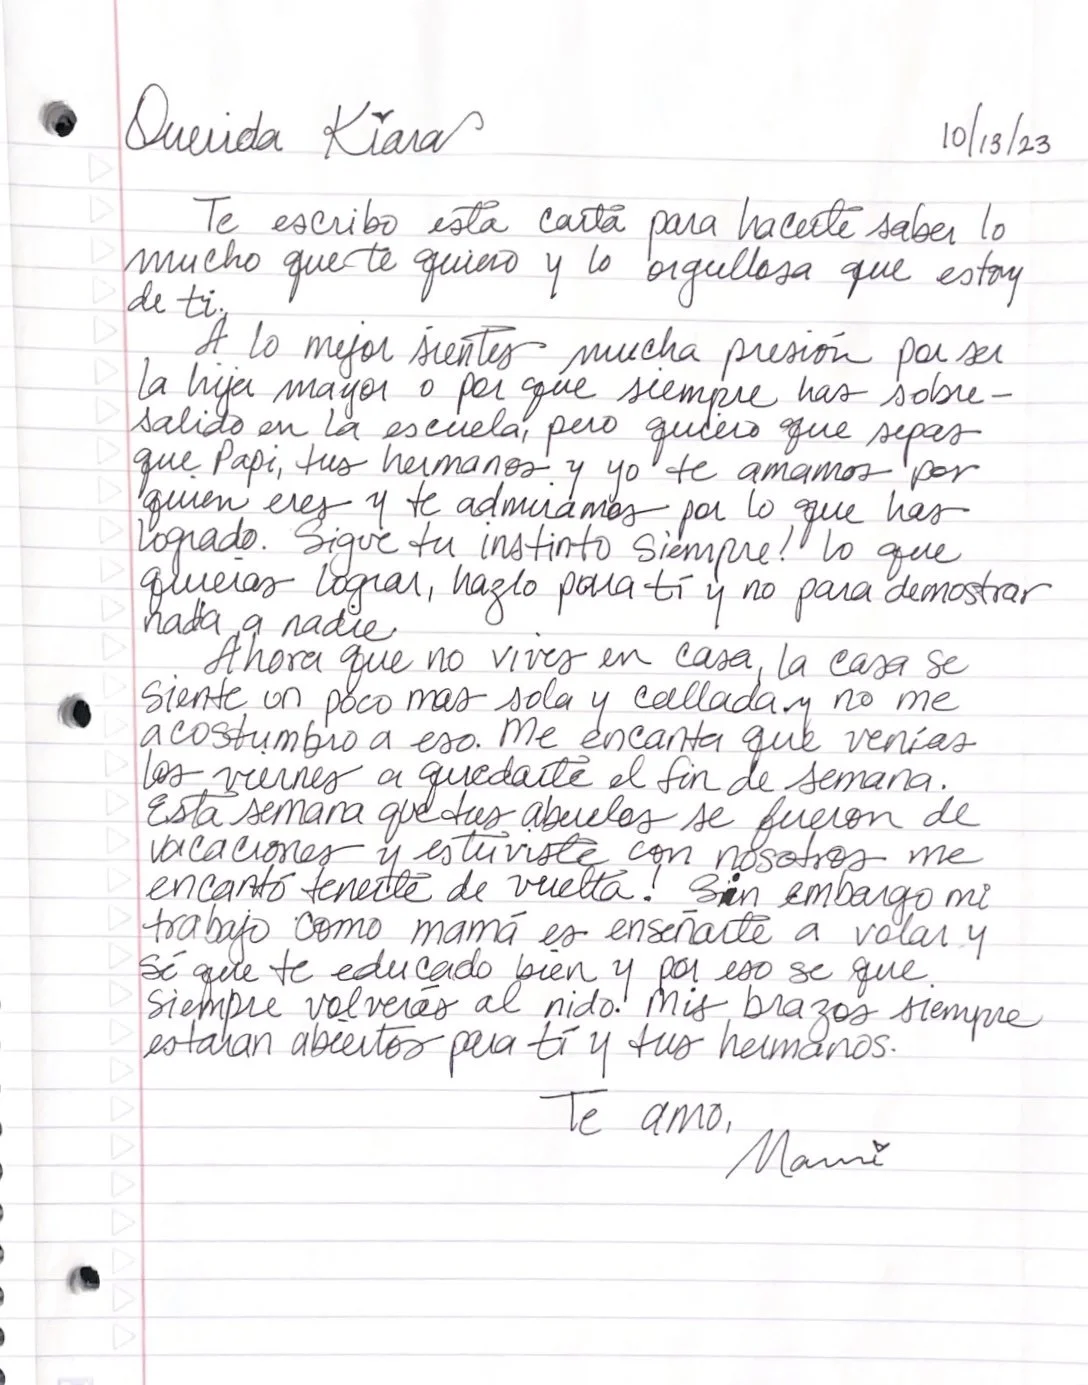 Querida Kiara
10/13/23
Te escribo esta carta para hacerte saber lo
mucho que te quiero y lo orgullosa que estoy
de ti.
A lo mejor sientes mucha presión por ser
la hija mayor o por que siempre has sobre-
salido en la escuela, pero quiero que sepas
que Papi, tus hermanos y yo te amamos por
quien eres y te admiramos por lo que has
logrado. Sigue tu instinto siempre! lo que
quieras lograr, hazlo para tí y no para demostrar
nada a nadie.
Ahora que no vives en casa, la casa se
siente un poco mas sola y callada y no me
acostumbro a eso. Me encanta que venias
los viernes a quedarte el fin de semana.
Esta semana que tus abuelos se fueron de
vacaciones y estuviste con nosotros me
encantó tenerte de vuelta! Sin embargo mi
trabajo como mamá es enseñarte a volar y
sé que te educado bien y por eso se que
siempre volverás al nido! Mis brazos siempre
estaran abiertos para tí y tus hermanos.
Te amo,
Mami